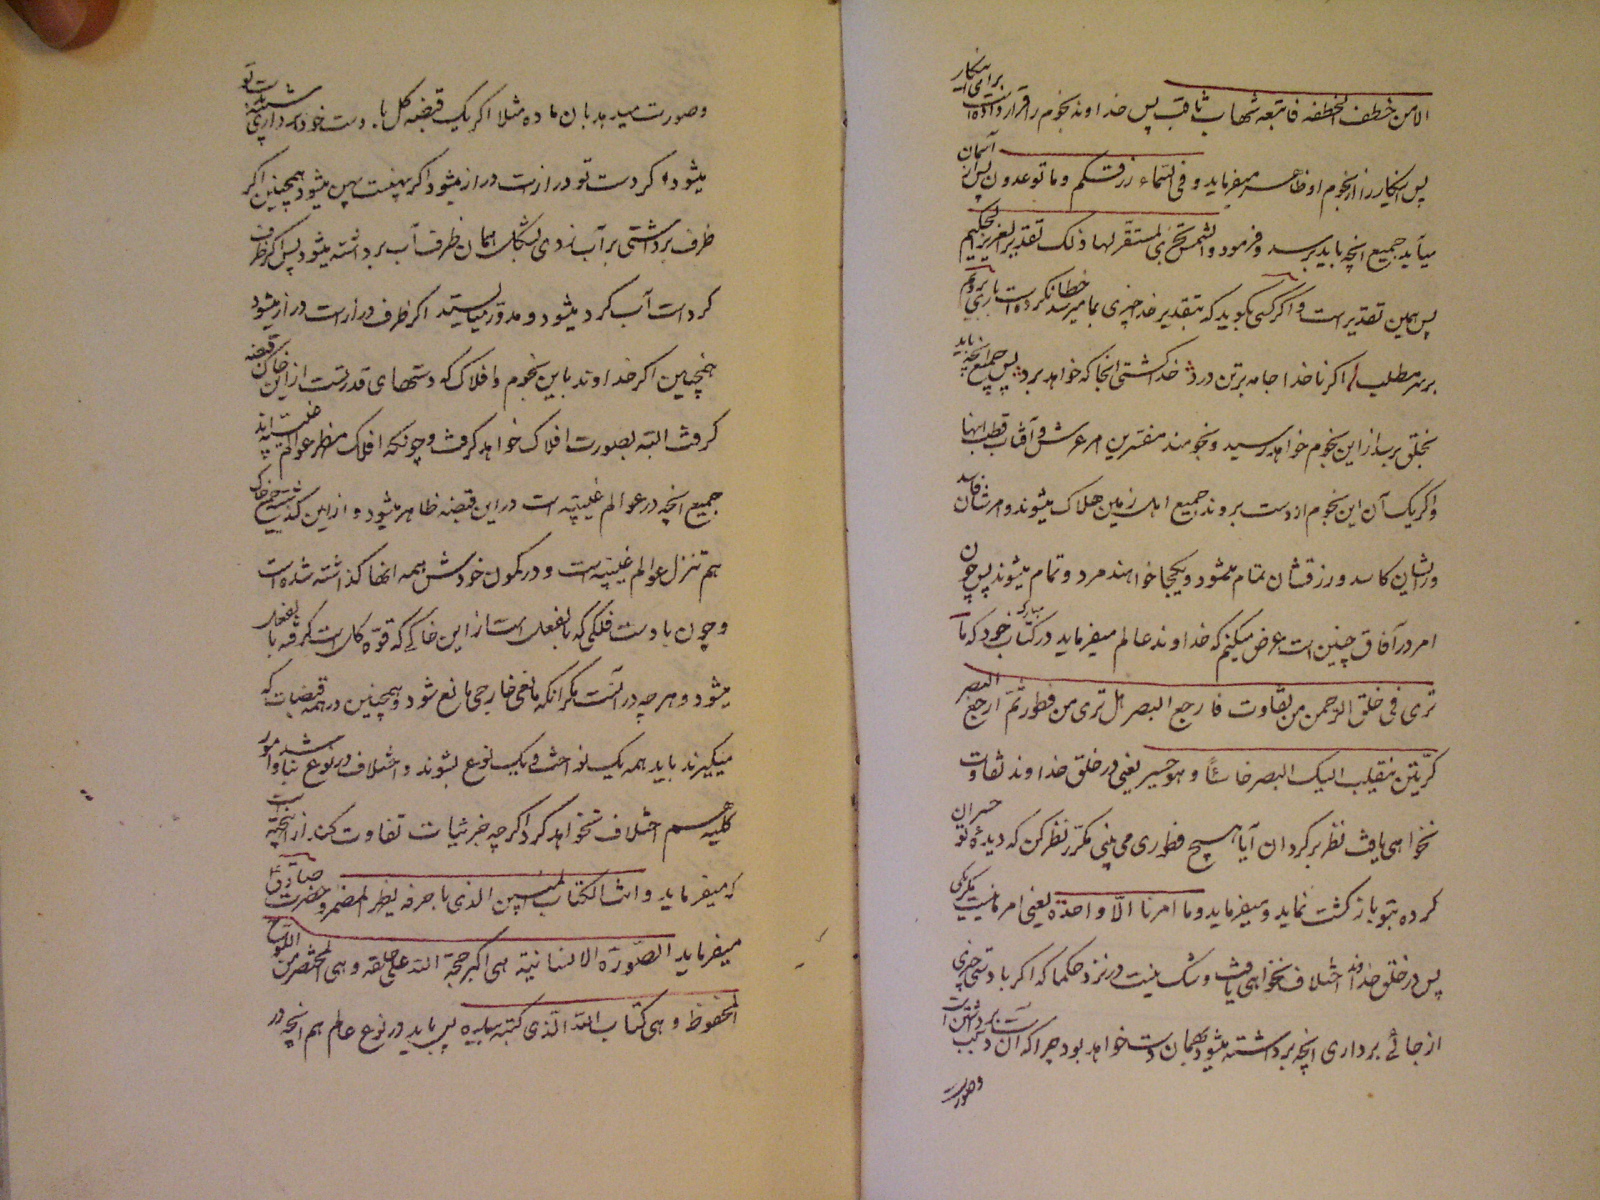 الامن خطف الخطفه فاتبعه شهاب ثاقب پس خداوند نجوم را قرار داده است برای اینکار
پس اینکار را از نجوم او ظاهر میفرماید و فی السماء رزقکم و ما توعدون پس از آسمان
میآید جمیع انچه باید برسد و فرمود و الشمس تجری لمستقر لها ذلک تقدیر العزیز الحکیم
پس همین تقدیر است و اگر کسی بگوید که بتقدیر خدا چیزی بما میرسد خطا نکرده است باری برویم
بر سر مطلب اگر ناخدا جامه برتن درد خدا کشتی انجا که خواهد برد پس جمیع انچه باید
بخلق برسد از این نجوم خواهد رسید و نجوم مثل منقسرین امر عرش و آفتاب قطب انها
و اگر یک آن این نجوم از دست بروند جمیع اهل زمین هلاک میشوند و امرشان فاسد
و رایشان کاسد و رزقشان تمام میشود و یکجا خواهند مرد و تمام میشوند پس چون
امر در آفاق چنین است عرض میکنم که خداوند عالم میفرماید در کتاب مبارک خود که ما
تری فی خلق الرحمن من تفاوت فارجع البصر هل تری من فطور ثم ارجع البصر
کرتین ینقلب الیک البصر خاسئا و هو حسیر یعنی در خلق خداوند تفاوت
نخواهی یافت نظر برگردان آیا هیچ فطوری می بینی مکرر نظر کن که دیده تو حسران
کرده بتو بازگشت نماید و میفرماید و ما امرنا الا واحدة یعنی امر ما نیست مگر یکی
پس در خلق خداوند اختلاف نخواهی یافت و شک نیست در نزد حکما که اگر با دستی چیزی
از جائی برداری انچه برداشته میشود بهمان دست خواهد بود چرا که آن دست برداشتن است
وصورت
وصورت میدهد بان ماده مثلا اگر یک قبضه گل با دست خود برداری شبیه بدست تو
میشود اگر دست تو دراز است دراز میشود اگر پهنست پهن میشود همچنین اگر
ظرف برداشتی بر آب زدی بشکل همان ظرف آب برداشته میشود پس اگر ظرف
گرد است آب گرد میشود و مدور میایستد اگر ظرف دراز است دراز میشود
همچنین اگر خداوند باین نجوم و افلاک که دستهای قدرتست از این خاک قبضه
گرفت البته بصورت افلاک خواهد گرفت و چونکه افلاک مظهر عوالم غیبیه اند
جمیع انچه در عوالم غیبیه است در این قبضه ظاهر میشود و از این گذشته جمیع خاک
هم تنزل عوالم غیبیه است و در کمون خودش همه انها گذاشته شده است
و چون با دست فلکی که بالفعل است از این خاکی که قوه کل است گرفته بالفعل
میشود و هرچه در آنست مگر انکه مانعی خارجی مانع شود و همچنین در همه قبضات که
میگیرند باید همه یک نواخت و یک نوع بشوند و اختلاف در نوع نباشد و امور
کلیه هم اختلاف نخواهد کرد اگرچه جزئیات تفاوت کند از اینجهة است
که میفرماید و انت الکتاب المبین الذی باحرفه یظهر المضمر و حضرت صادق ع
میفرماید الصورة الانسانیة هی اکبر حجة الله علی خلقه و هی المختصر من اللوح
المحفوظ و هی کتاب الله الذی کتبه بیده پس باید در نوع عالم هم انچه در